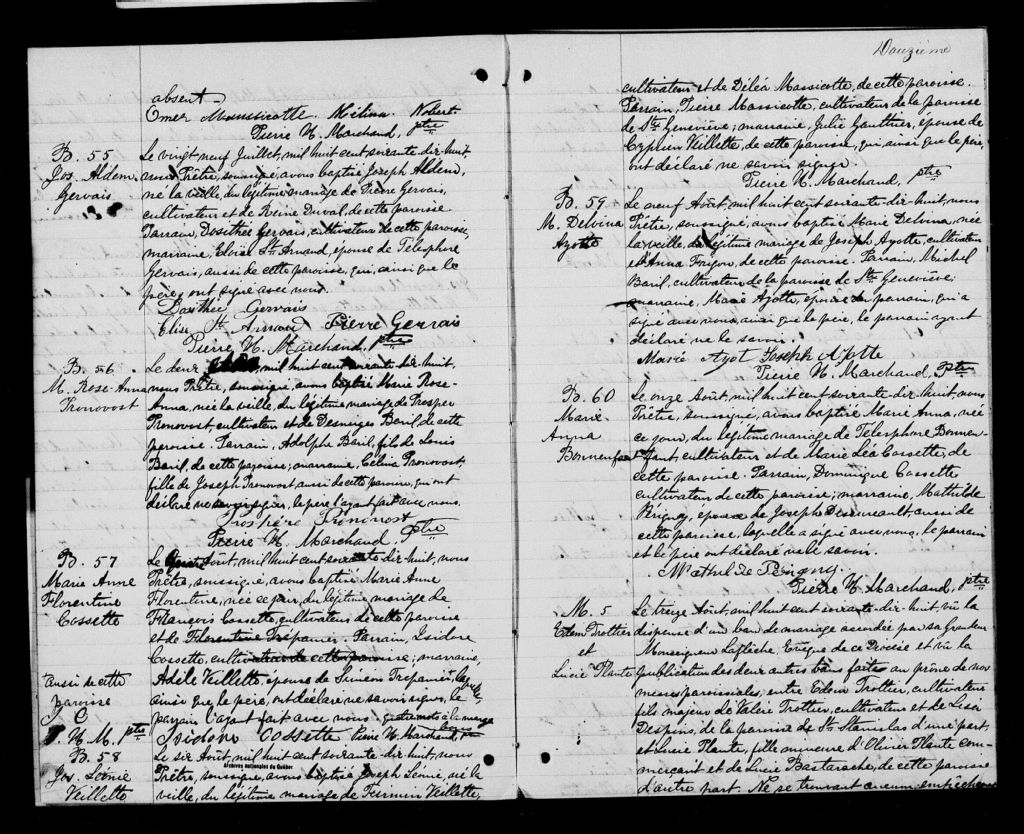 absent.
Omer Massicotte. Mélina Nobert.
Pierre H. Marchand, ptre
B. 55
Jos. Aldem.
Gervais
Le vingt neuf Juillet, mil huit cent soixante dix-huit,
nous Prêtre, soussigné, avons baptisé Joseph Aldem,
né la veille, du légitime mariage de Pierre Gervais,
cultivateur et de Reine Duval, de cette paroisse.
Parrain, Dosithée Gervais, cultivateur de cette paroisse,
marraine, Eloïse St Arnaud, épouse de Télesphore
Gervais, aussi de cette paroisse, qui, ainsi que le
père, ont signé avec nous.
Dosithée Gervais
Elise St Arnaud Pierre Gervais
Pierre H. Marchand, ptre
B. 56
M. Rose-Anna
Pronovost
Le deux mil huit cent soixante dix-huit,
nous Prêtre, soussigné, avons baptisé Marie Rose-
Anna, née la veille, du légitime mariage de Prosper
Pronovost, cultivateur et de Desneiges Baril de cette
paroisse. Parrain, Adolphe Baril, fils de Louis
Baril, de cette paroisse; marraine, Célina Pronovost,
fille de Joseph Pronovost, aussi de cette paroisse, qui ont
déclaré ne savoir signer, le père l'ayant fait avec nous.
Prospère Pronovost
Pierre H. Marchand, Ptre
B. 57
Marie Anne
Florentine
Cossette
Le Août, mil huit cent soixante dix-huit, nous
Prêtre, soussigné, avons baptisé Marie Anne
Florentine, née ce jour, du légitime mariage de
François Cossette, cultivateur de cette paroisse
et de Florentine Trépanier. Parrain, Isidore
Cossette, cultivateur de cette paroisse; marraine,
Adèle Veillette, épouse de Siméon Trépanier, laquelle
ainsi que le père, ont déclaré ne savoir signer, le
parrain l'ayant fait avec nous. quatre mots à la marge
aussi de cette
paroisse
J C
P. H. M. ptre
Isidore Cossette Pierre H. Marchand, ptre
B. 58
Jos. Léonie
Veillette
Le six Août, mil huit cent soixante dix-huit, nous
Archives nationales du Québec
Prêtre, soussigné, avons baptisé Joseph Léonie, né la
veille, du légitime mariage de Firmin Veillette,
Douzième
cultivateur et de Déléa Massicotte, de cette paroisse.
Parrain, Pierre Massicotte, cultivateur de la paroisse
de Ste Geneviève; marraine, Julie Gauthier, épouse de
Cyprien Veillette, de cette paroisse, qui, ainsi que le père,
ont déclaré ne savoir signer.
Pierre H. Marchand, ptre
B. 59
M. Delvina
Ayotte
Le neuf Août, mil huit cent soixante dix-huit, nous
Prêtre, soussigné, avons baptisé Marie Delvina, née
la veille, du légitime mariage de Joseph Ayotte, cultivateur
et d'Anna Frigon, de cette paroisse. Parrain, Michel
Baril, cultivateur de la paroisse de Ste Geneviève;
marraine, Marie Ayotte, épouse du parrain, qui a
signé avec nous, ainsi que le père, le parrain ayant
déclaré ne le savoir.
Marie Ayot Joseph Ayotte
Pierre H. Marchand. Ptre
B. 60
Marie
Anna
Bonnenfant
Le onze Août, mil huit cent soixante-dix-huit, nous
Prêtre, soussigné, avons baptisé Marie Anna, née
ce jour, du légitime mariage de Télesphore Bonnen-
fant, cultivateur et de Marie Léa Cossette, de
cette paroisse. Parrain, Dominique Cossette
cultivateur de cette paroisse; marraine, Mathilde
Périgny, épouse de Joseph Dessureault, aussi de
cette paroisse, laquelle a signé avec nous, le parrain
et le père ont déclaré ne le savoir.
Mathilde Périgny.
Pierre H. Marchand, ptre
M. 5
Edem Trottier
et
Lucie Plante
Le treize Août, mil huit cent soixante-dix-huit vû la
dispense d'un ban de mariage accordée par sa Grandeur
Monseigneur Laflèche, Evêque de ce Diocèse et vû la
publication des deux autres bans faites au prône de nos
messes paroissiales, entre Edem Trottier, cultivateur
fils majeur de Valère Trottier, cultivateur et de Lucie
Despins, de la paroisse de St Stanislas d'une part;
et Lucie Plante, fille mineure d'Olivier Plante com-
merçant et de Lucie Bastarache, de cette paroisse
d'autre part. Ne se trouvant aucun empêchement